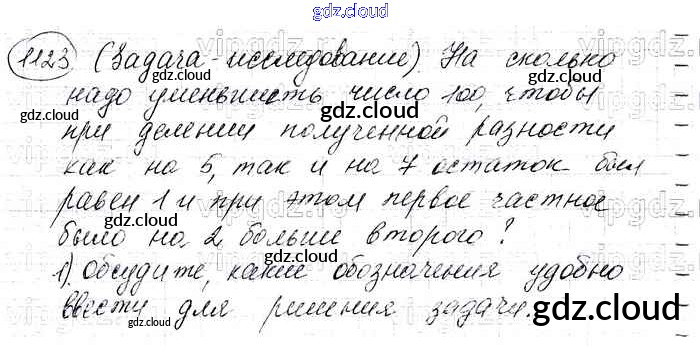 gdz.cloud
1123 (Задача-исследование). На сколько
надо уменьшить число 100, чтобы
при делении полученной разности
как на 5, так и на 7 остаток был
равен 1 и при этом первое частное
было на 2 больше второго?
1). Обсудите, какие обозначения удобно
ввести для решения задачи.
gdz.cloud